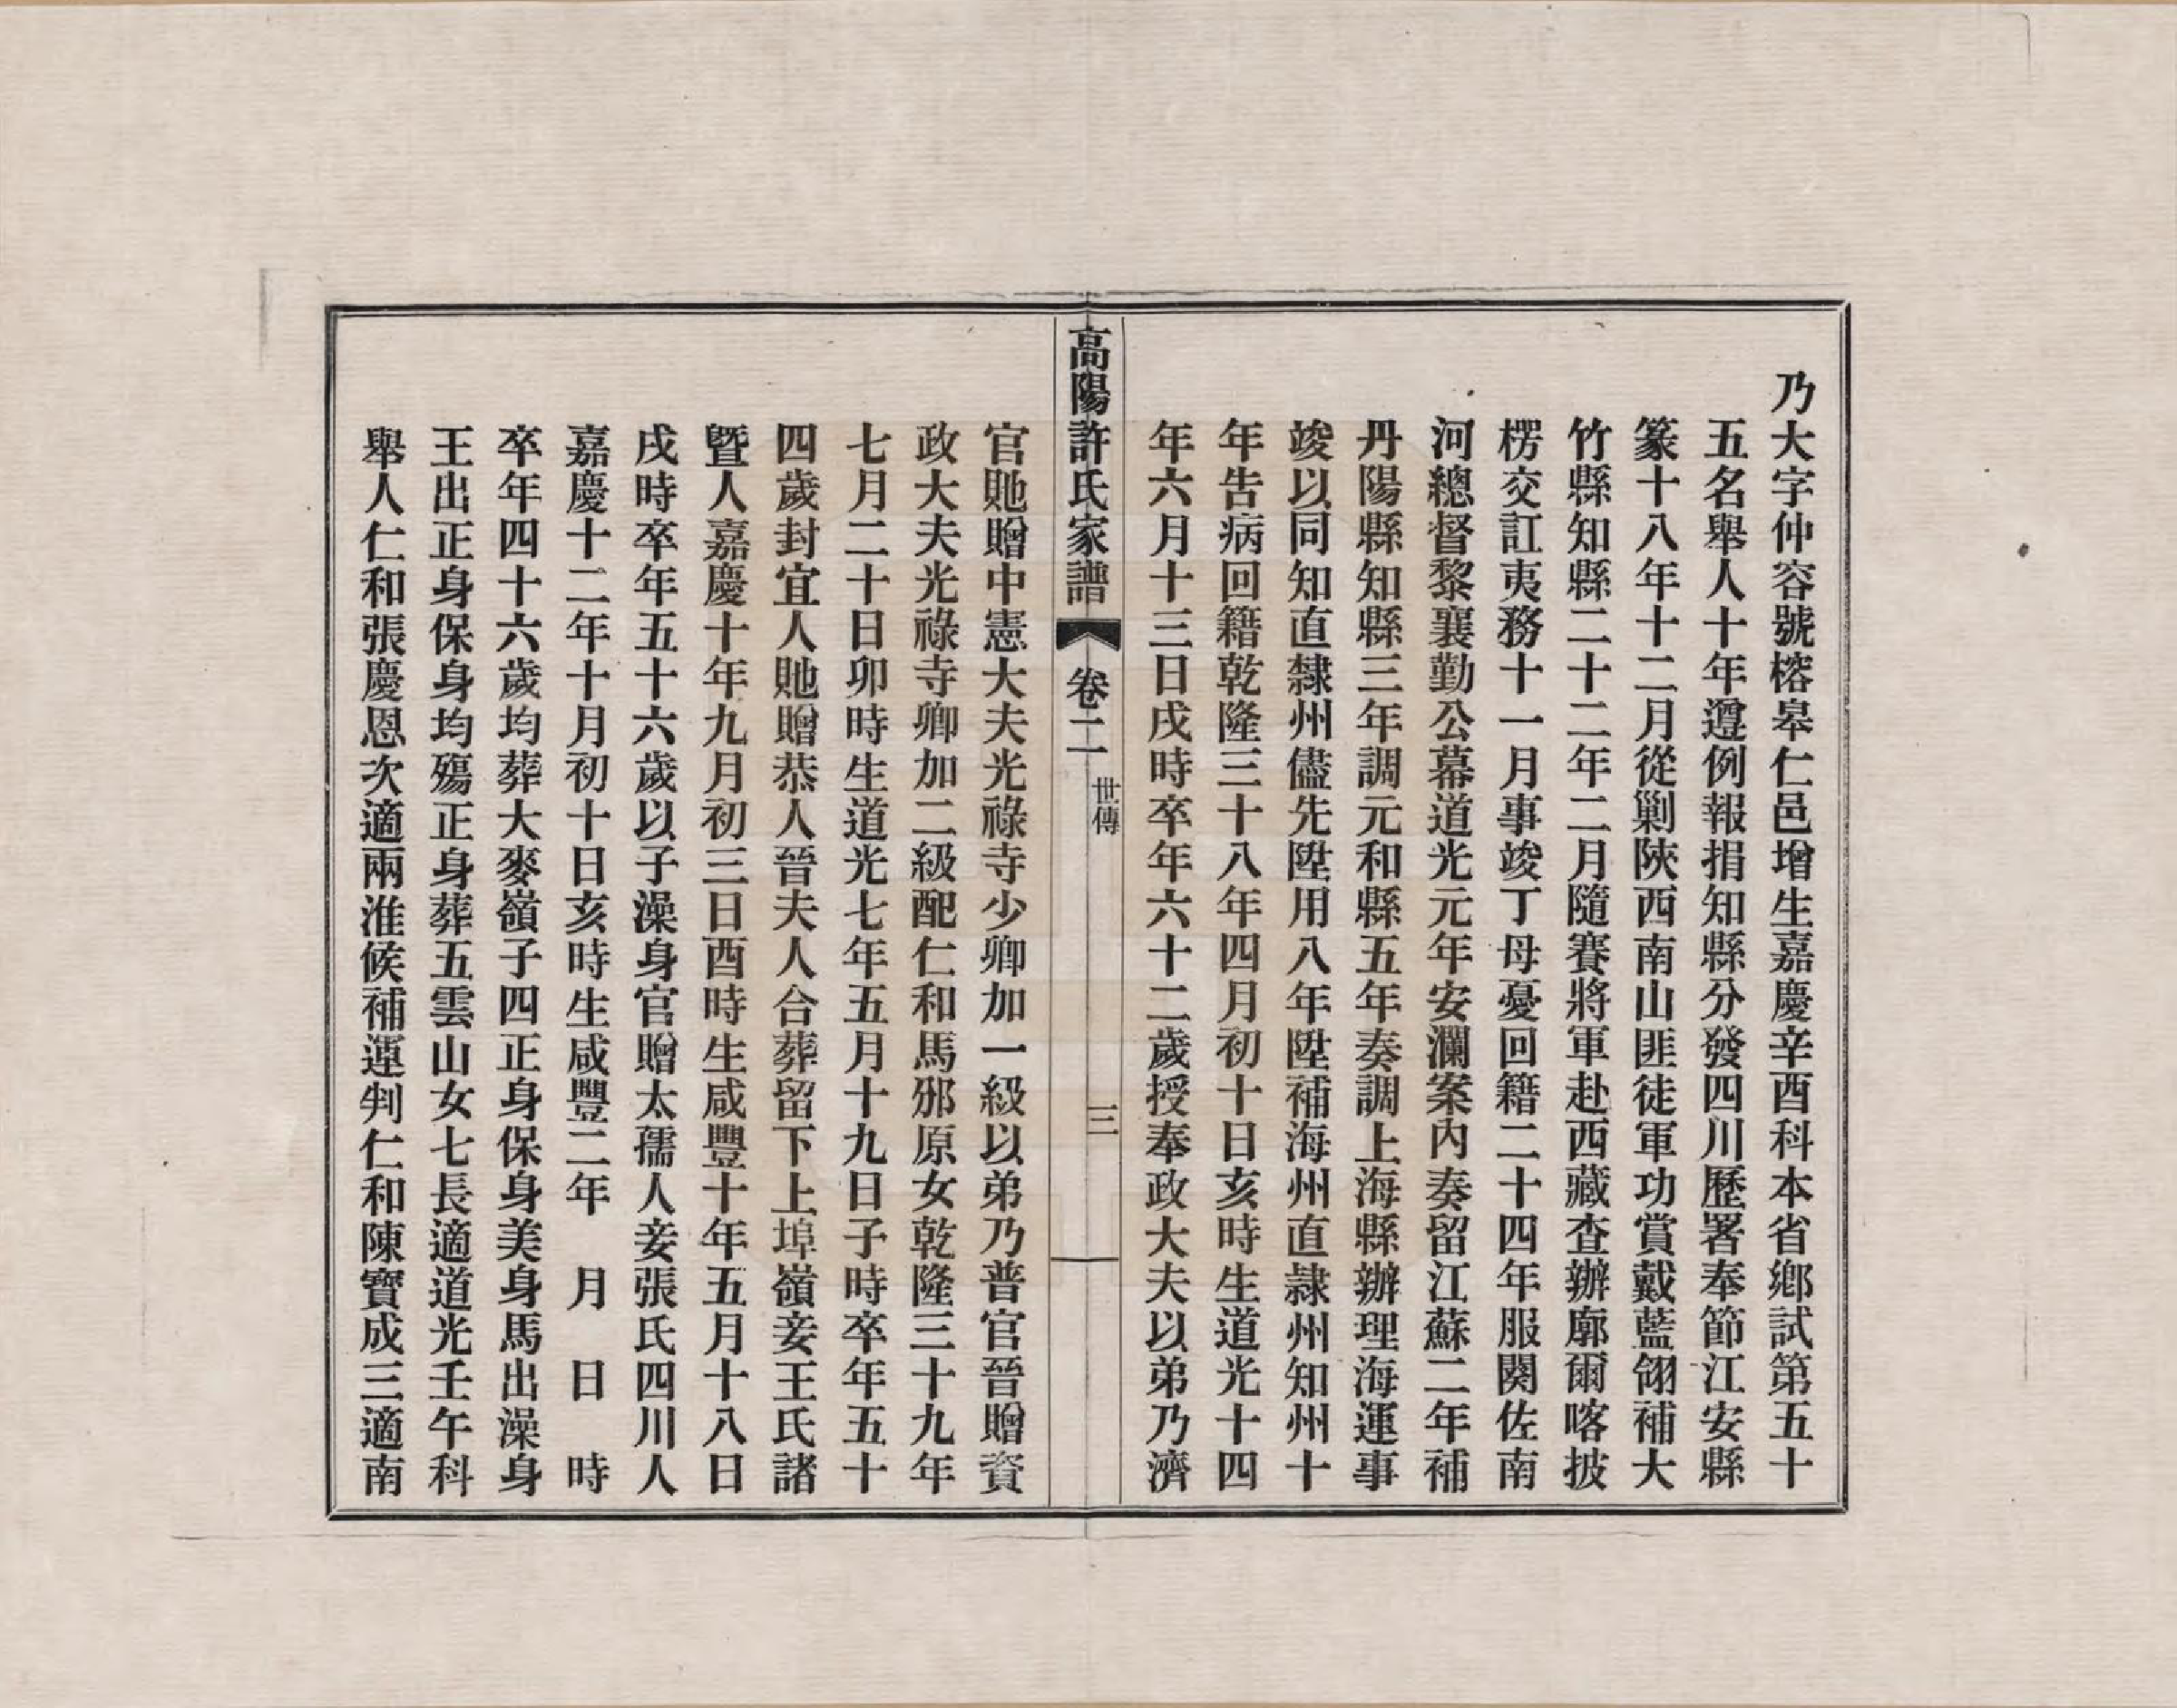 乃大字仲容號榕皋仁邑增生嘉慶辛酉科本省鄉試第五十
五名舉人十年遵例報捐知縣分發四川歷署奉節江安縣
篆十八年十二月從剿陝西南山匪徒軍功賞戴藍翎補大
竹縣知縣二十二年二月隨賽將軍赴西藏查辦廓爾喀披
楞交訌夷務十一月事竣丁母憂回籍二十四年服闋佐南
河總督黎襄勤公幕道光元年安瀾案內奏留江蘇二年補
丹陽縣知縣三年調元和縣五年奏調上海縣辦理海運事
竣以同知直隸州儘先陞用八年陞補海州直隸州知州十
年告病回籍乾隆三十八年四月初十日亥時生道光十四
年六月十三日戌時卒年六十二歲授奉政大夫以弟乃濟
高陽許氏家譜 卷二 世傳 三
官貤贈中憲大夫光祿寺少卿加一級以弟乃普官晉贈資
政大夫光祿寺卿加二級配仁和馬邪原女乾隆三十九年
七月二十日卯時生道光七年五月十九日子時卒年五十
四歲封宜人貤贈恭人晉夫人合葬留下上埠嶺妾王氏諸
暨人嘉慶十年九月初三日酉時生咸豐十年五月十八日
戌時卒年五十六歲以子澡身官贈太孺人妾張氏四川人
嘉慶十二年十月初十日亥時生咸豐二年 月 日 時
卒年四十六歲均葬大麥嶺子四正身保身美身馬出澡身
王出正身保身均殤正身葬五雲山女七長適道光壬午科
舉人仁和張慶恩次適兩淮候補運判仁和陳寶成三適南